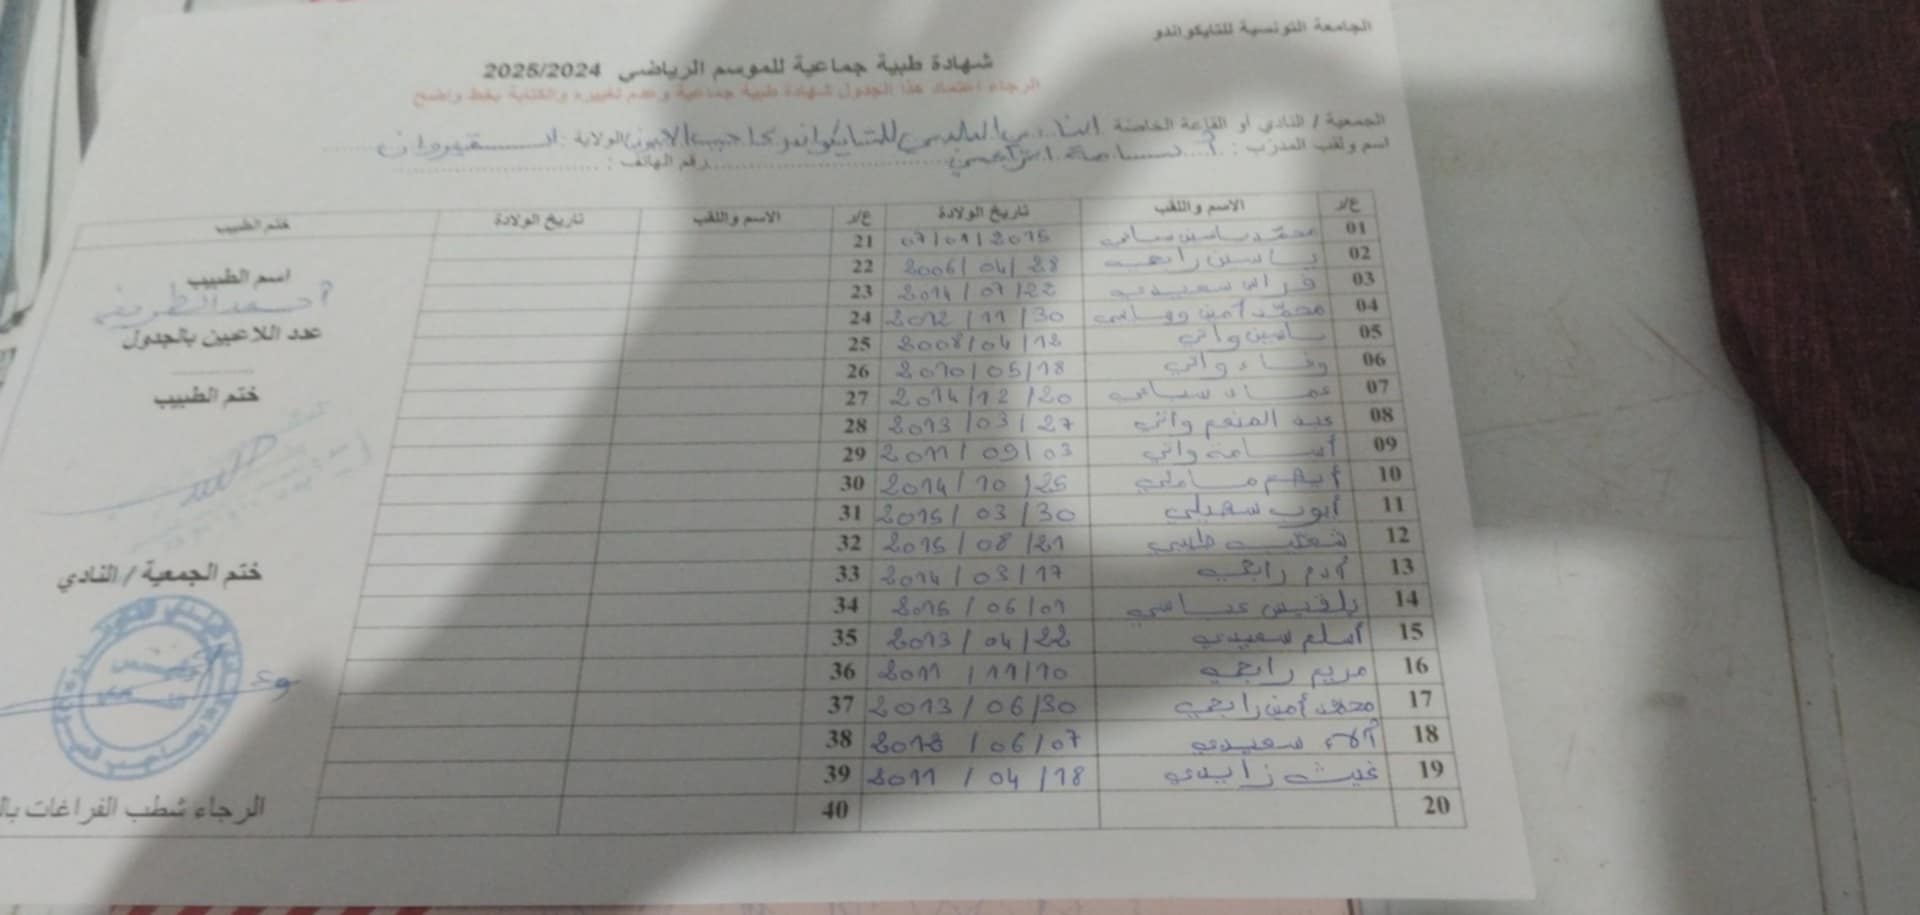 الجامعة التونسية للتايكواندو
شهادة طبية جماعية للموسم الرياضي 2025/2024
الرجاء اعتماد هذا الجدول كشهادة طبية جماعية وعدم تغييره والكتابة بخط واضح
الجمعية / النادي أو القاعة الخاصة للتايكواندو الولاية : القيروان
اسم ولقب المدرب : أسامة رقم الهاتف :
ع/ر الاسم واللقب تاريخ الولادة ع/ر الاسم واللقب تاريخ الولادة ختم الطبيب
01 محمد ياسين 07/01/2015 21
02 ياسين رابحي 2006/04/28 22
03 فراس سعيدي 2014/07/22 23
04 محمد أمين 2012/11/30 24
05 ياسين واني 2008/04/12 25
06 وفاء واني 2010/05/18 26
07 2014/12/20 27
08 عبد المنعم واني 2013/03/27 28
09 أسامة واني 2011/09/03 29
10 أيهم 2014/10/25 30
11 أيوب 2015/03/30 31
12 2015/08/21 32
13 آدم رابحي 2014/03/17 33
14 بلقيس عباسي 2015/06/01 34
15 أسلم سعيدي 2013/04/22 35
16 مريم رابحي 2011/11/10 36
17 محمد أمين رابحي 2013/06/30 37
18 آلاء سعيدي 06/07 38
19 غيث زايدي 2011/04/18 39
20 40
اسم الطبيب
أحمد
عدد اللاعبين بالجدول
ختم الطبيب
ختم الجمعية / النادي
الرجاء شطب الفراغات